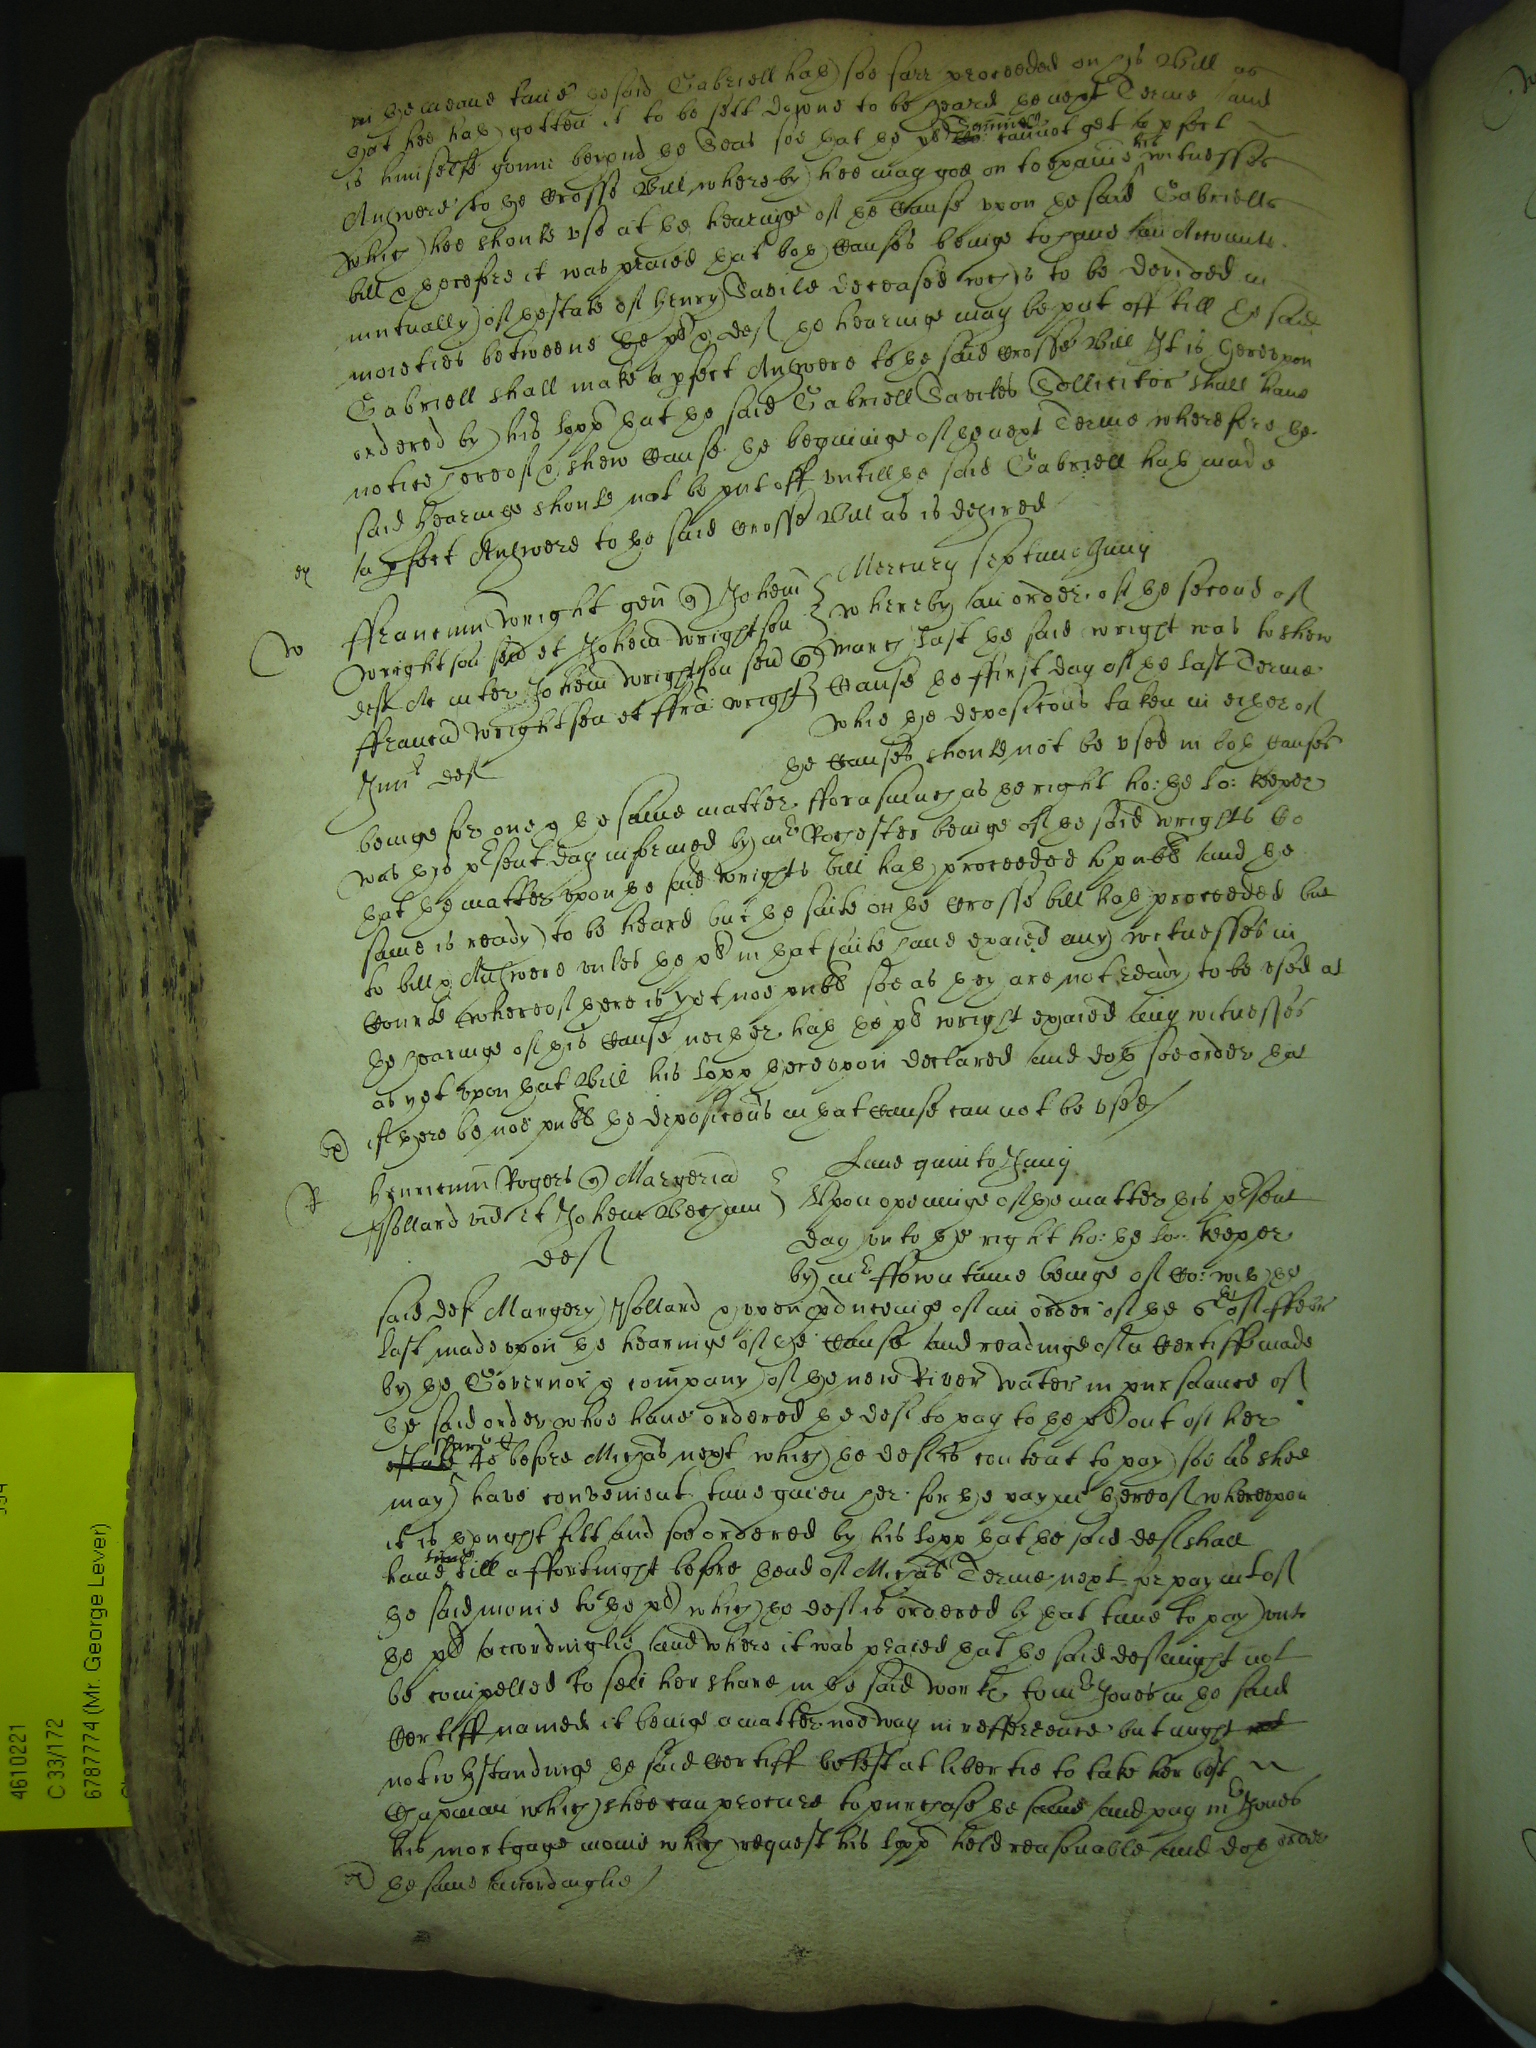 in the meane time the said Gabriell hath soe farr proceeded on his Bill as
that hee hath gotten it to be sett downe to be heard the next Terme and
is himselfe gonne beyond the Seas soe that the pł Samuel cannot get a pfect
Answere to the Crosse Bill whereby hee may goe on to exaiē his witnesses
which hee should vse at the hearinge of the Cause vpon the said Gabriells
bill & therefore it was praied that both Causes beinge to have an Accounte
mutually of thestate of Henry Savile deceased wch is to be devided in
moieties betweene the pł & def the hearinge may be put off till the said
Gabriell shall make a pfect Answere to the said Crosse Bill It is therevpon
ordered by his lopp that the said Gabriell Saviles Sollicitor shall have
notice hereof & shew Cause the begininge of the next Terme wherefore the
said hearinge should not be put off vntill the said Gabriell hath made
a pfect Answere to the said Crosse Bill as is desired
Mercury septimo Junij
W ffrancum Wright gen̄ Johem
Wrightson sen̄ et Johem Wrightson
def Ac inter Johem Wrightson sen̄
ffrancū Wrightson et ffra: Wright
Jun̄ def
whereby an order of the second of
March last the said Wright was to shew
Cause the ffirst day of the last Terme
whie the depositons taken in either of
the Causes should not be vsed in both Causes
beinge for one & the same matter fforasmuch as the right ho: the lo: Keeper
was this pſent day informed by mr Rochester beinge of the said Wrights Co
that the matter vpon the said Wrights bill hath proceeded to publ and the
same is ready to be heard but the suite on the Crosse bill hath proceeded but
to bill & Answere vnles the pł in that suite have exaied any witnesses in
Court whereof there is yet noe publ soe as they are not ready to be vsed at
the hearinge of this Cause neither hath the pł Wright exaied any witnesses
as yet vpon that Bill his lopp therevpon declared and doth soe order that
if there be noe publ the depositons in that Cause can not be vsed
Lune quinto Junij
R Henricum Rogers Margeria
Pollard vid et Johem
def
Vpon openinge of the matter this pſent
day vnto the right ho: the lo: Keeper
by mr ffountaine beinge of Co: wth the
said def Margery Pollard & vpon pducinge of an order of the 6th of ffebr
last made vpon the hearinge of the Cause and readinge of a Certiff made
by the Governor & company of the new River water in pursuance of
the said order whoe have ordered the def to pay to the pł out of her
share before Michas next which the def is content to pay soe as shee
may have convenient time given her for the paymt thereof wherevpon
it is thought fitt and soe ordered by his lopp that the said def shall
have time till a ffortnight before thend of Michas Terme next for paymt of
the said monie to the pł which the def is ordered by that time to pay vnto
the pł accordinglie and where it was praied that the said def might not
be compelled to sell her share in the said works to mr Jones in the said
Certiff named it beinge a matter noe way in refference but might
notwthstandinge the said Certiff be left at libertie to take her best
Chapman which shee can procure to purchase the same and pay mr Jones
his mortgage monie which request his lopp held reasonable and doth order
the same accordinglie
4610221
C 33/172
6787774 (Mr. George Lever)